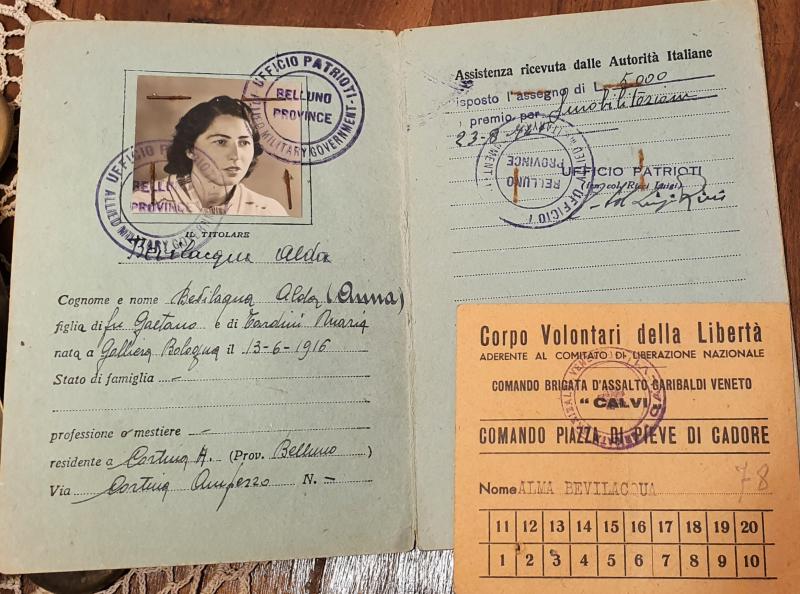 UFFICIO PATRIOTI
BELLUNO
PROVINCE
ALLIED MILITARY GOVERNMENT
UFFICIO
BELLUNO
PROVINCE
ALLIED MILITARY
IL TITOLARE
Bevilacqua Alda
Cognome e nome Bevilaqua Alda (Anna)
figlia di fu Gaetano e di Tardini Maria
nata a Galliera Bologna il 13-6-1916
Stato di famiglia -
professione o mestiere -
residente a Cortina A. (Prov. Belluno)
Via Cortina Ampezzo N. -
Assistenza ricevuta dalle Autorità Italiane
isposto l'assegno di L. 5000
premio per smobilitazione
UFFICIO
BELLUNO
PROVINCE
UFFICIO PATRIOTI
(ten. col. Ricci Luigi)
Corpo Volontari della Libertà
ADERENTE AL COMITATO DI LIBERAZIONE NAZIONALE
COMANDO BRIGATA D'ASSALTO GARIBALDI VENETO
"CALVI"
COMANDO PIAZZA DI PIEVE DI CADORE
78
Nome ALMA BEVILACQUA
11 12 13 14 15 16 17 18 19 20
1 2 3 4 5 6 7 8 9 10